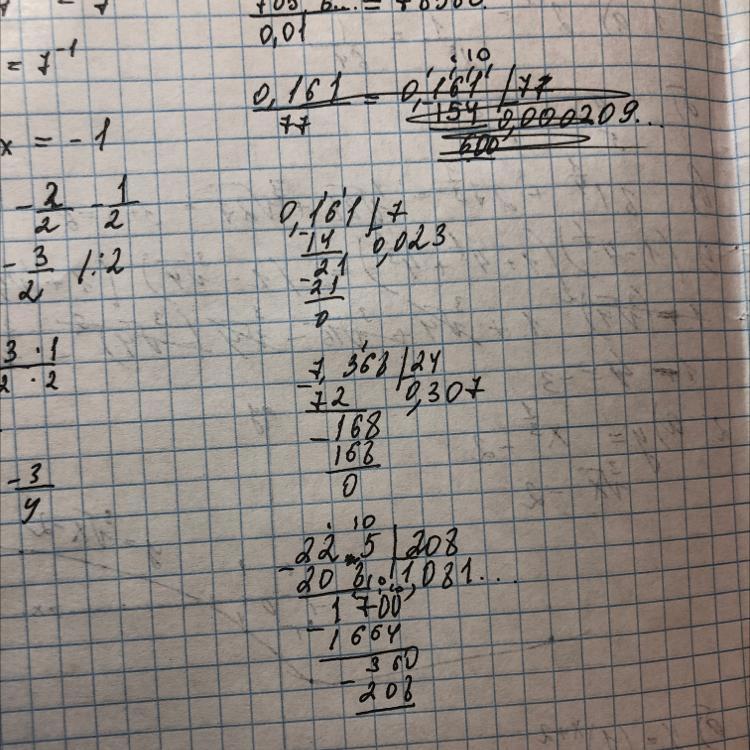 0,01
= 7⁻¹
x = -1
- 2/2 - 1/2
- 3/2 /:2
3 · 1
2 · 2
-3
4
0,161/77 = 0,161 | 77
154 0,000209...
600
0,161 | 7
-14 0,023
-21
21
0
-7,368 | 24
72 0,307
-168
168
0
10
-22 5 | 208
20 8 1,081...
-1700
1664
-360
208